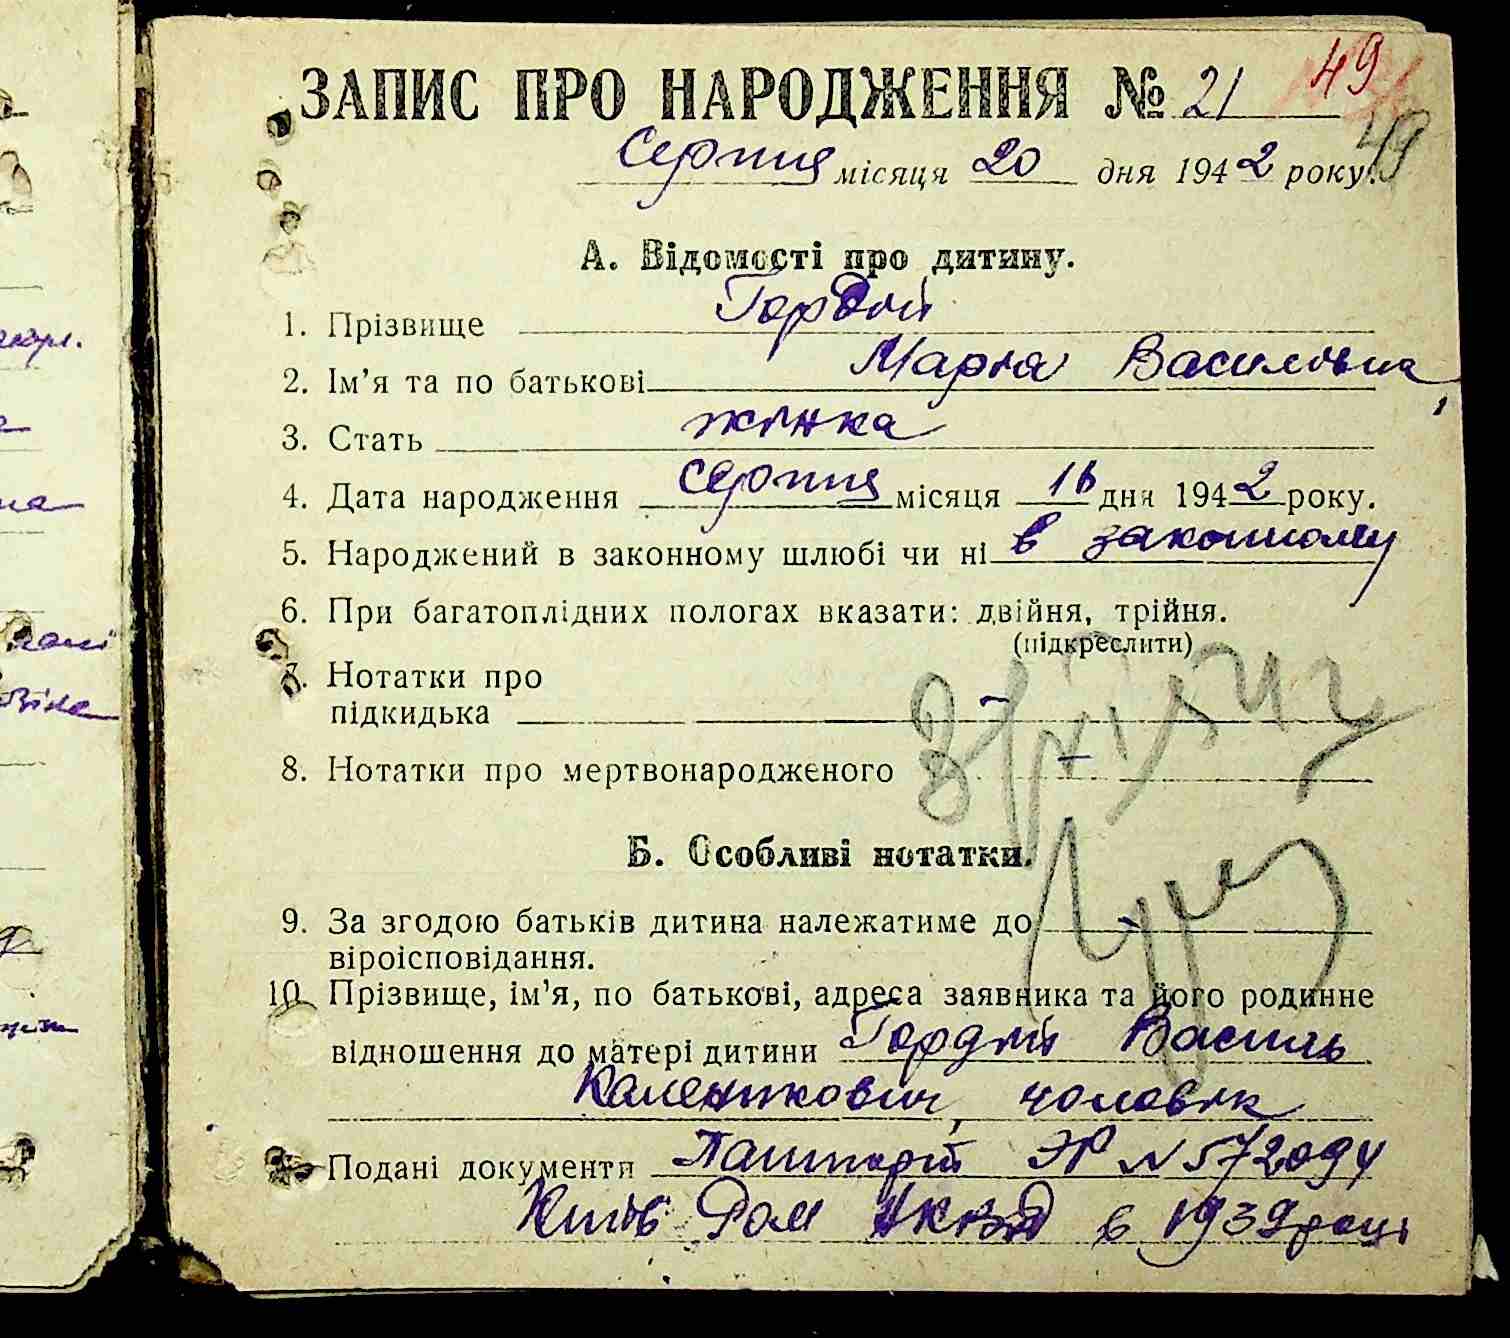 49
ЗАПИС ПРО НАРОДЖЕННЯ № 21
49
Серпня місяця 20 дня 1942 року.
А. Відомості про дитину.
1. Прізвище Гордій
2. Ім'я та по батькові Марія Василівна
3. Стать жінка
4. Дата народження серпня місяця 16 дня 1942 року.
5. Народжений в законному шлюбі чи ні в законному
6. При багатоплідних пологах вказати: двійня, трійня.
(підкреслити)
7. Нотатки про
підкидька —
8. Нотатки про мертвонародженого —
Б. Особливі нотатки.
9. За згодою батьків дитина належатиме до —
віроісповідання.
10. Прізвище, ім'я, по батькові, адреса заявника та його родинне
відношення до матері дитини Гордій Василь
Каленикович, чоловік
Подані документи Пашпорт ЭР N 572094
Київ НКВД в 1939 році